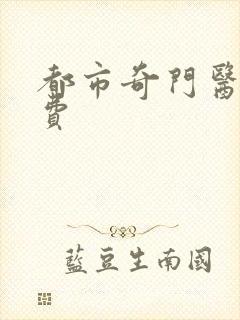 都市奇門醫
費
藍豆生南國